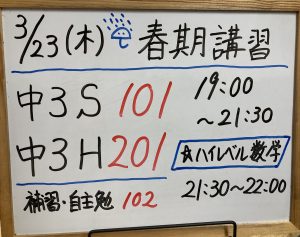 3/23(木) 春期講習
中3S 101 19:00
~21:30
中3H 201 ☆ハイレベル数学
補習・自主勉 102 21:30~22:00